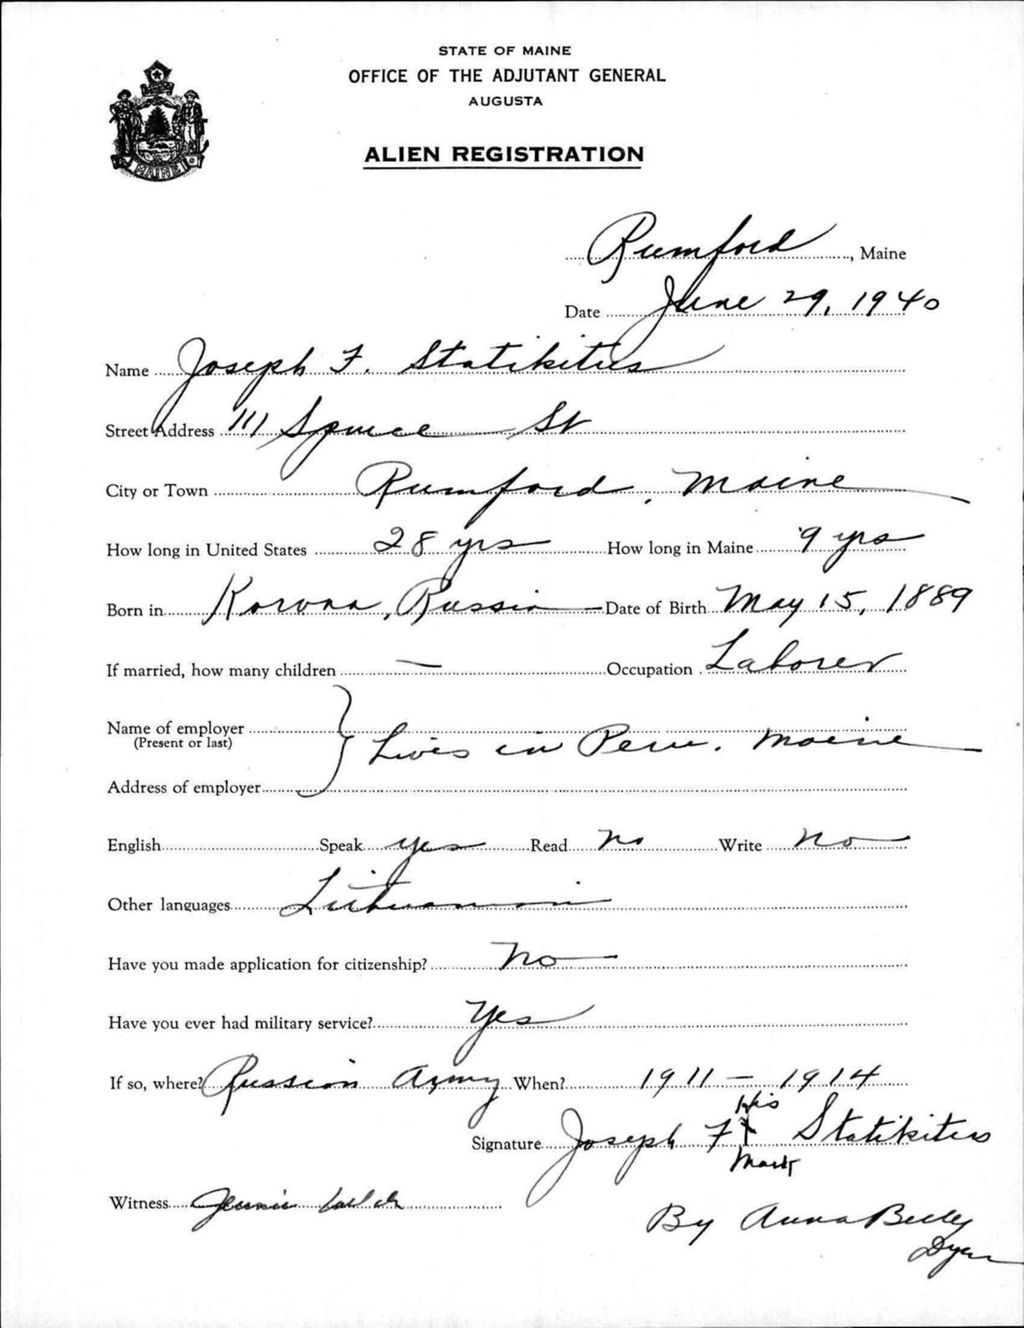 STATE OF MAINE
OFFICE OF THE ADJUTANT GENERAL
AUGUSTA
ALIEN REGISTRATION
MAINE
Rumford, Maine
Date June 29, 1940
Name Joseph F. Statikitus
Street Address 111 Spruce St
City or Town Rumford, Maine
How long in United States 28 yrs How long in Maine 9 yrs
Born in Kovna, Russia Date of Birth May 15, 1889
If married, how many children — Occupation Laborer
Name of employer
(Present or last)
Lives in Peru, Maine
Address of employer
English Speak yes Read No Write No
Other languages Lithuanian
Have you made application for citizenship? No
Have you ever had military service? Yes
If so, where? Russian Army When? 1911 - 1914
His
Signature Joseph F X Statikitus
Mark
Witness Jennie
By Anna
Dyer